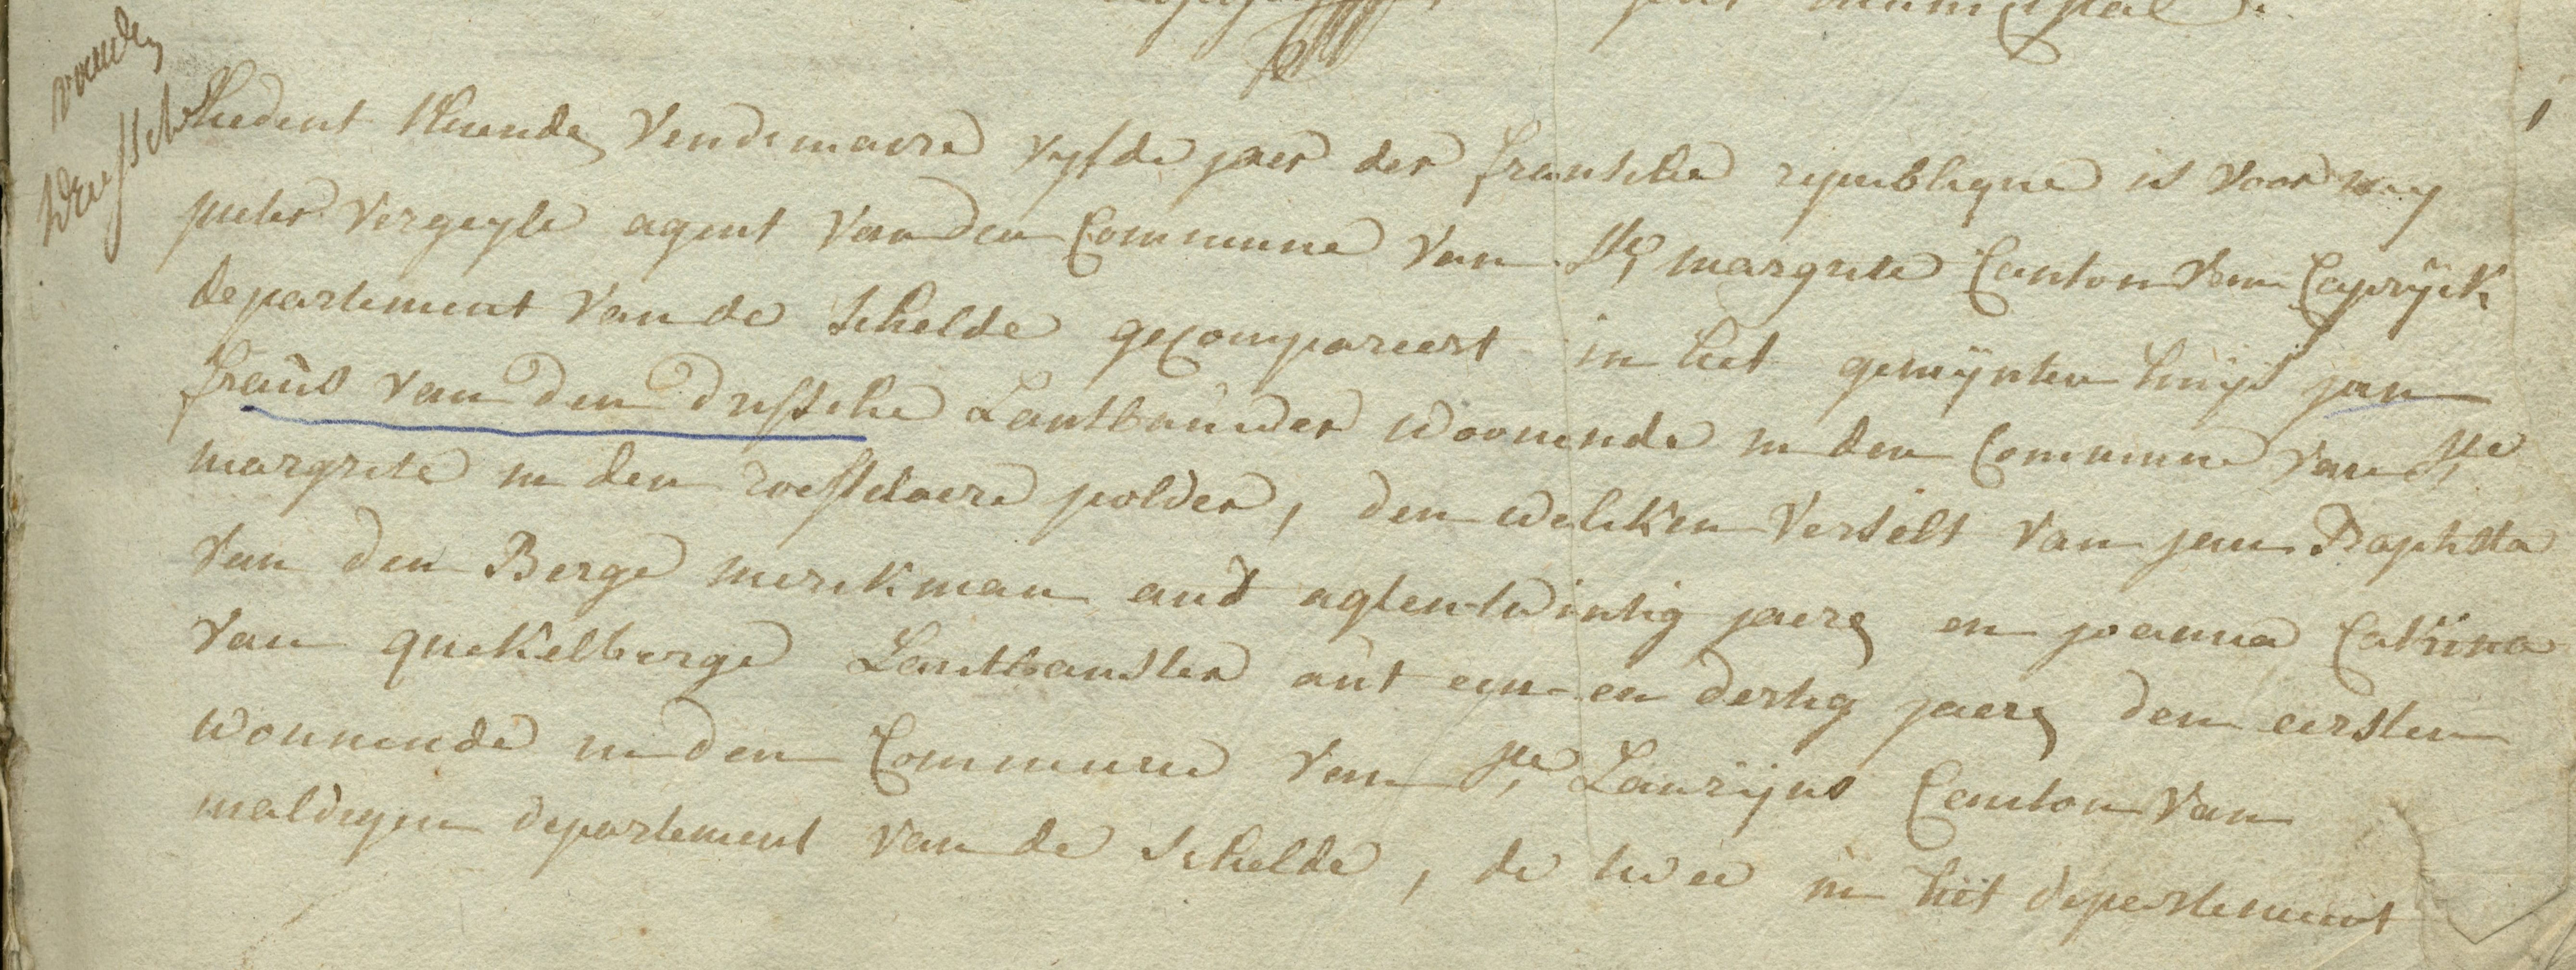 pur municipal.
vanden
Dressche
Hedent thiende Vendimaire vyfde jaer der fransche republique is voor my
pieter Vergeyle agent van den Commune van Ste margriete Canton van Capryck
departement van de Schelde gecompareert in het gemynten huys jan
frans van den dressche Lantbauwer woonende in den Commune van Ste
margriete in den roesselaere polder, den welcken verselt van jan Baptista
van den Berge merckman aud agtentwintig jaere en joanna Catrina
van quekelberge Lantbauster aut eyn en dertig jaere den eersten
wonnende in den Commune van Ste Laurijns Canton van
maldegem departement van de Schelde, de twee in het departement